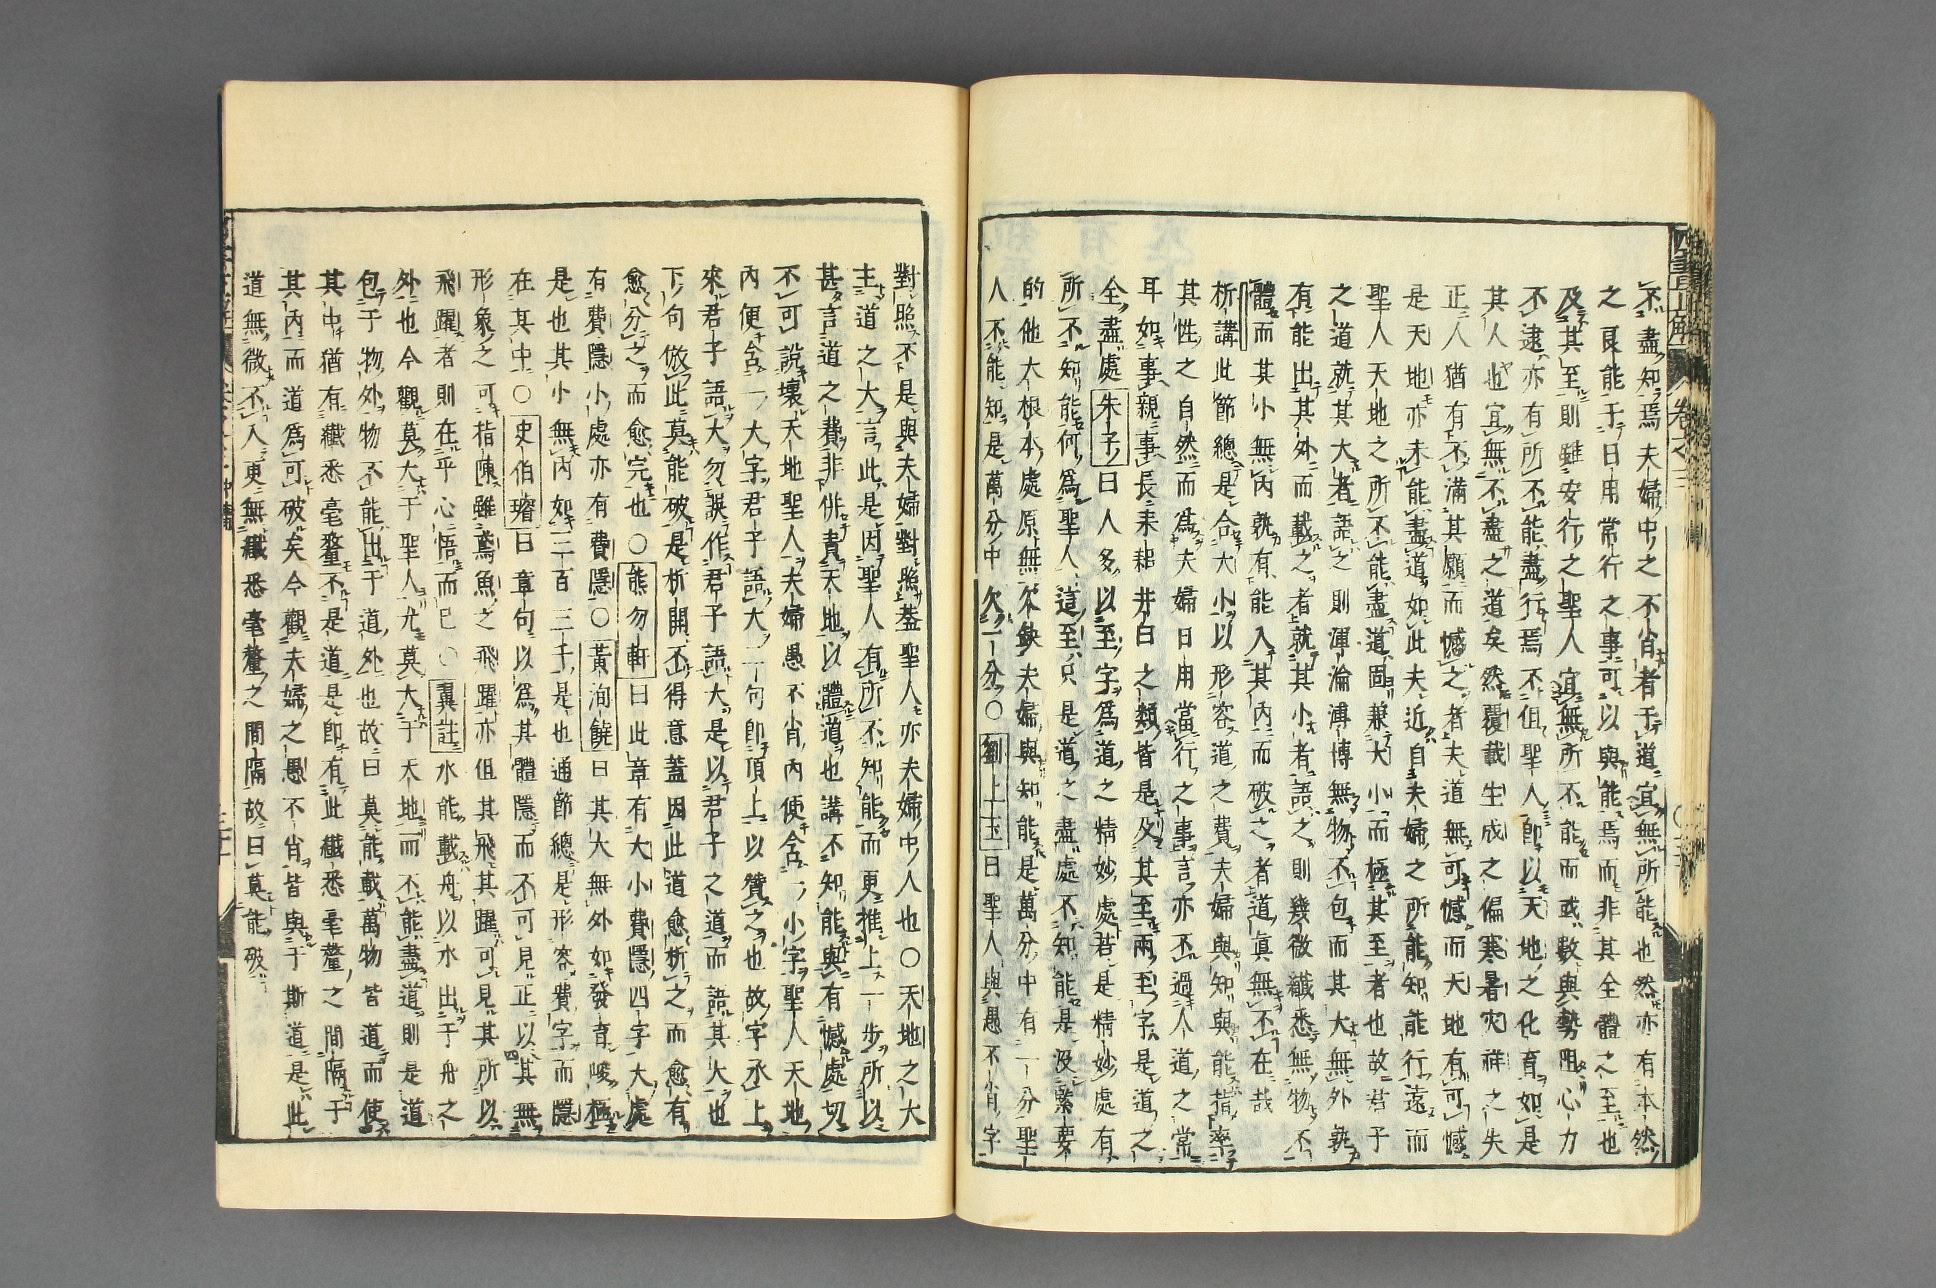 不盡知焉夫婦中之不肖者于道宜無所能也然亦有本然
之良能于日用常行之事可以與能焉而非其全體之至也
及其至則雖安行之聖人宜無所不能而或數與勢阻心力
不逮亦有所不能盡行焉不但聖人卽以天地之化育如是
其人也宜無不盡之道矣然覆載生成之偏寒暑灾祥之失
正人猶有不滿其願而憾之者夫道無可憾而天地有可憾
是天地亦未能盡道如此夫近自夫婦之所能知能行遠而
聖人天地之所不能盡道固兼大小而極其至者也故君子
之道就其大者語之則渾淪溥博無物不包而其大無外孰
有能出其外而載之者就其小者語之則幾微纖悉無物不
體而其小無內孰有能入其內而破之者道眞無不在哉
析講此節總是合大小以形容道之費夫婦與知與能指率
其性之自然而爲夫婦日用當行之事言亦不過人道之常
耳如事親事長耒耜井臼之類皆是及其至兩至字是道之
全盡處朱子曰人多以至字爲道之精妙處若是精妙處有
所不知能何爲聖人這至只是道之盡處不知能是沒緊要
的他大根本處原無欠缺夫婦與知能是萬分中有一分聖
人不能知是萬分中欠一分〇劉上玉曰聖人與愚不肖字
對照不是與夫婦對照葢聖人亦夫婦中人也〇天地之大
主道之大言此是因聖人有所不知能而更推上一步所以
甚言道之費非俳責天地以體道也講不知能與有憾處切
不可說壞天地聖人夫婦愚不肖內便含一小字聖人天地
內便含一大字君子語大二句卽頂上以贊之也故字丞上
來君子語大勿誤作君子語大是以君子之道而語其大也
下句倣此莫能破是析開不得意蓋因此道愈析之而愈有
愈分之而愈完也〇熊勿軒曰此章有大小費隱四字大處
有費隱小處亦有費隱〇黃洵饒曰其大無外如發育峻極
是也其小無內如三百三千是也通節總是形容費字而隱
在其中〇史伯璿曰章句以爲其體隱而不可見正以其無
形象之可指陳雖鳶魚之飛躍亦但其飛其躍可見其所以
飛躍者則在乎心悟而已〇翼註水能載舟以水出于舟之
外也今觀莫大于聖人尤莫大于天地而不能盡道則是道
包于物外物不能出于道外也故曰莫能載萬物皆道而使
其中猶有纖悉毫釐不是道是卽有此纖悉毫釐之間隔于
其內而道爲可破矣今觀夫婦之愚不肖皆與于斯道是此
道無微不入更無纖悉毫釐之間隔故曰莫能破